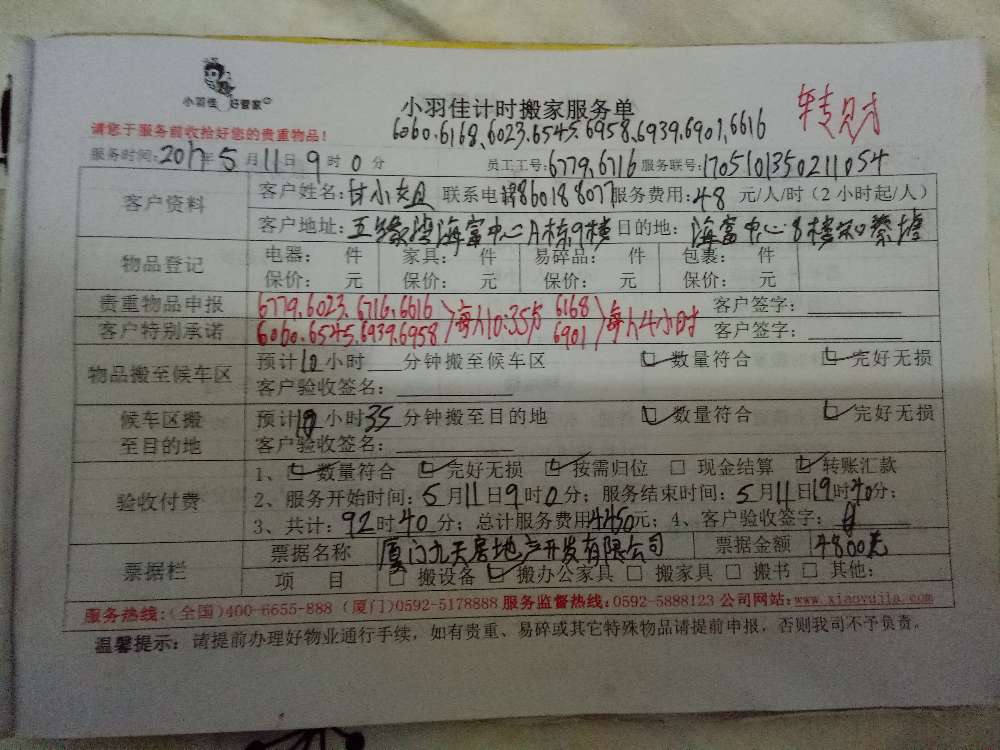 小羽佳 好管家
小羽佳计时搬家服务单
转财
请您于服务前收拾好您的贵重物品!
6060.6168.6023.6545.6958.6939.6901.6616
服务时间:2017年5月11日9时0分 员工工号:6779.6716 服务联号:1705101350211054
客户资料 客户姓名: 联系电话 服务费用:48元/人/时(2小时起/人)
客户地址:五缘湾海富中心A栋9楼 目的地:海富中心8楼
物品登记 电器: 件 家具: 件 易碎品: 件 包裹: 件
保价: 元 保价: 元 保价: 元 保价: 元
贵重物品申报 6779.6023.6716.6616 每人10:35分 6168 每人4小时 客户签字:
客户特别承诺 6060.6545.6939.6958 6901 客户签字:
物品搬至候车区 预计10小时 分钟搬至候车区 数量符合 完好无损
客户验收签名:
候车区搬至目的地 预计10小时35分钟搬至目的地 数量符合 完好无损
客户验收签名:
验收付费 1、数量符合 完好无损 按需归位 现金结算 转账汇款
2、服务开始时间:5月11日9时0分;服务结束时间:5月11日19时40分;
3、共计:92时40分;总计服务费用4450元;4、客户验收签字:
票据栏 票据名称 厦门九天房地产开发有限公司 票据金额 4800元
项 目 搬设备 搬办公家具 搬家具 搬书 其他:
服务热线:(全国)400-6655-888 (厦门)0592-5178888 服务监督热线:0592-5888123 公司网站:www.xiaoyujia.com
温馨提示:请提前办理好物业通行手续,如有贵重、易碎或其它特殊物品请提前申报,否则我司不予负责。